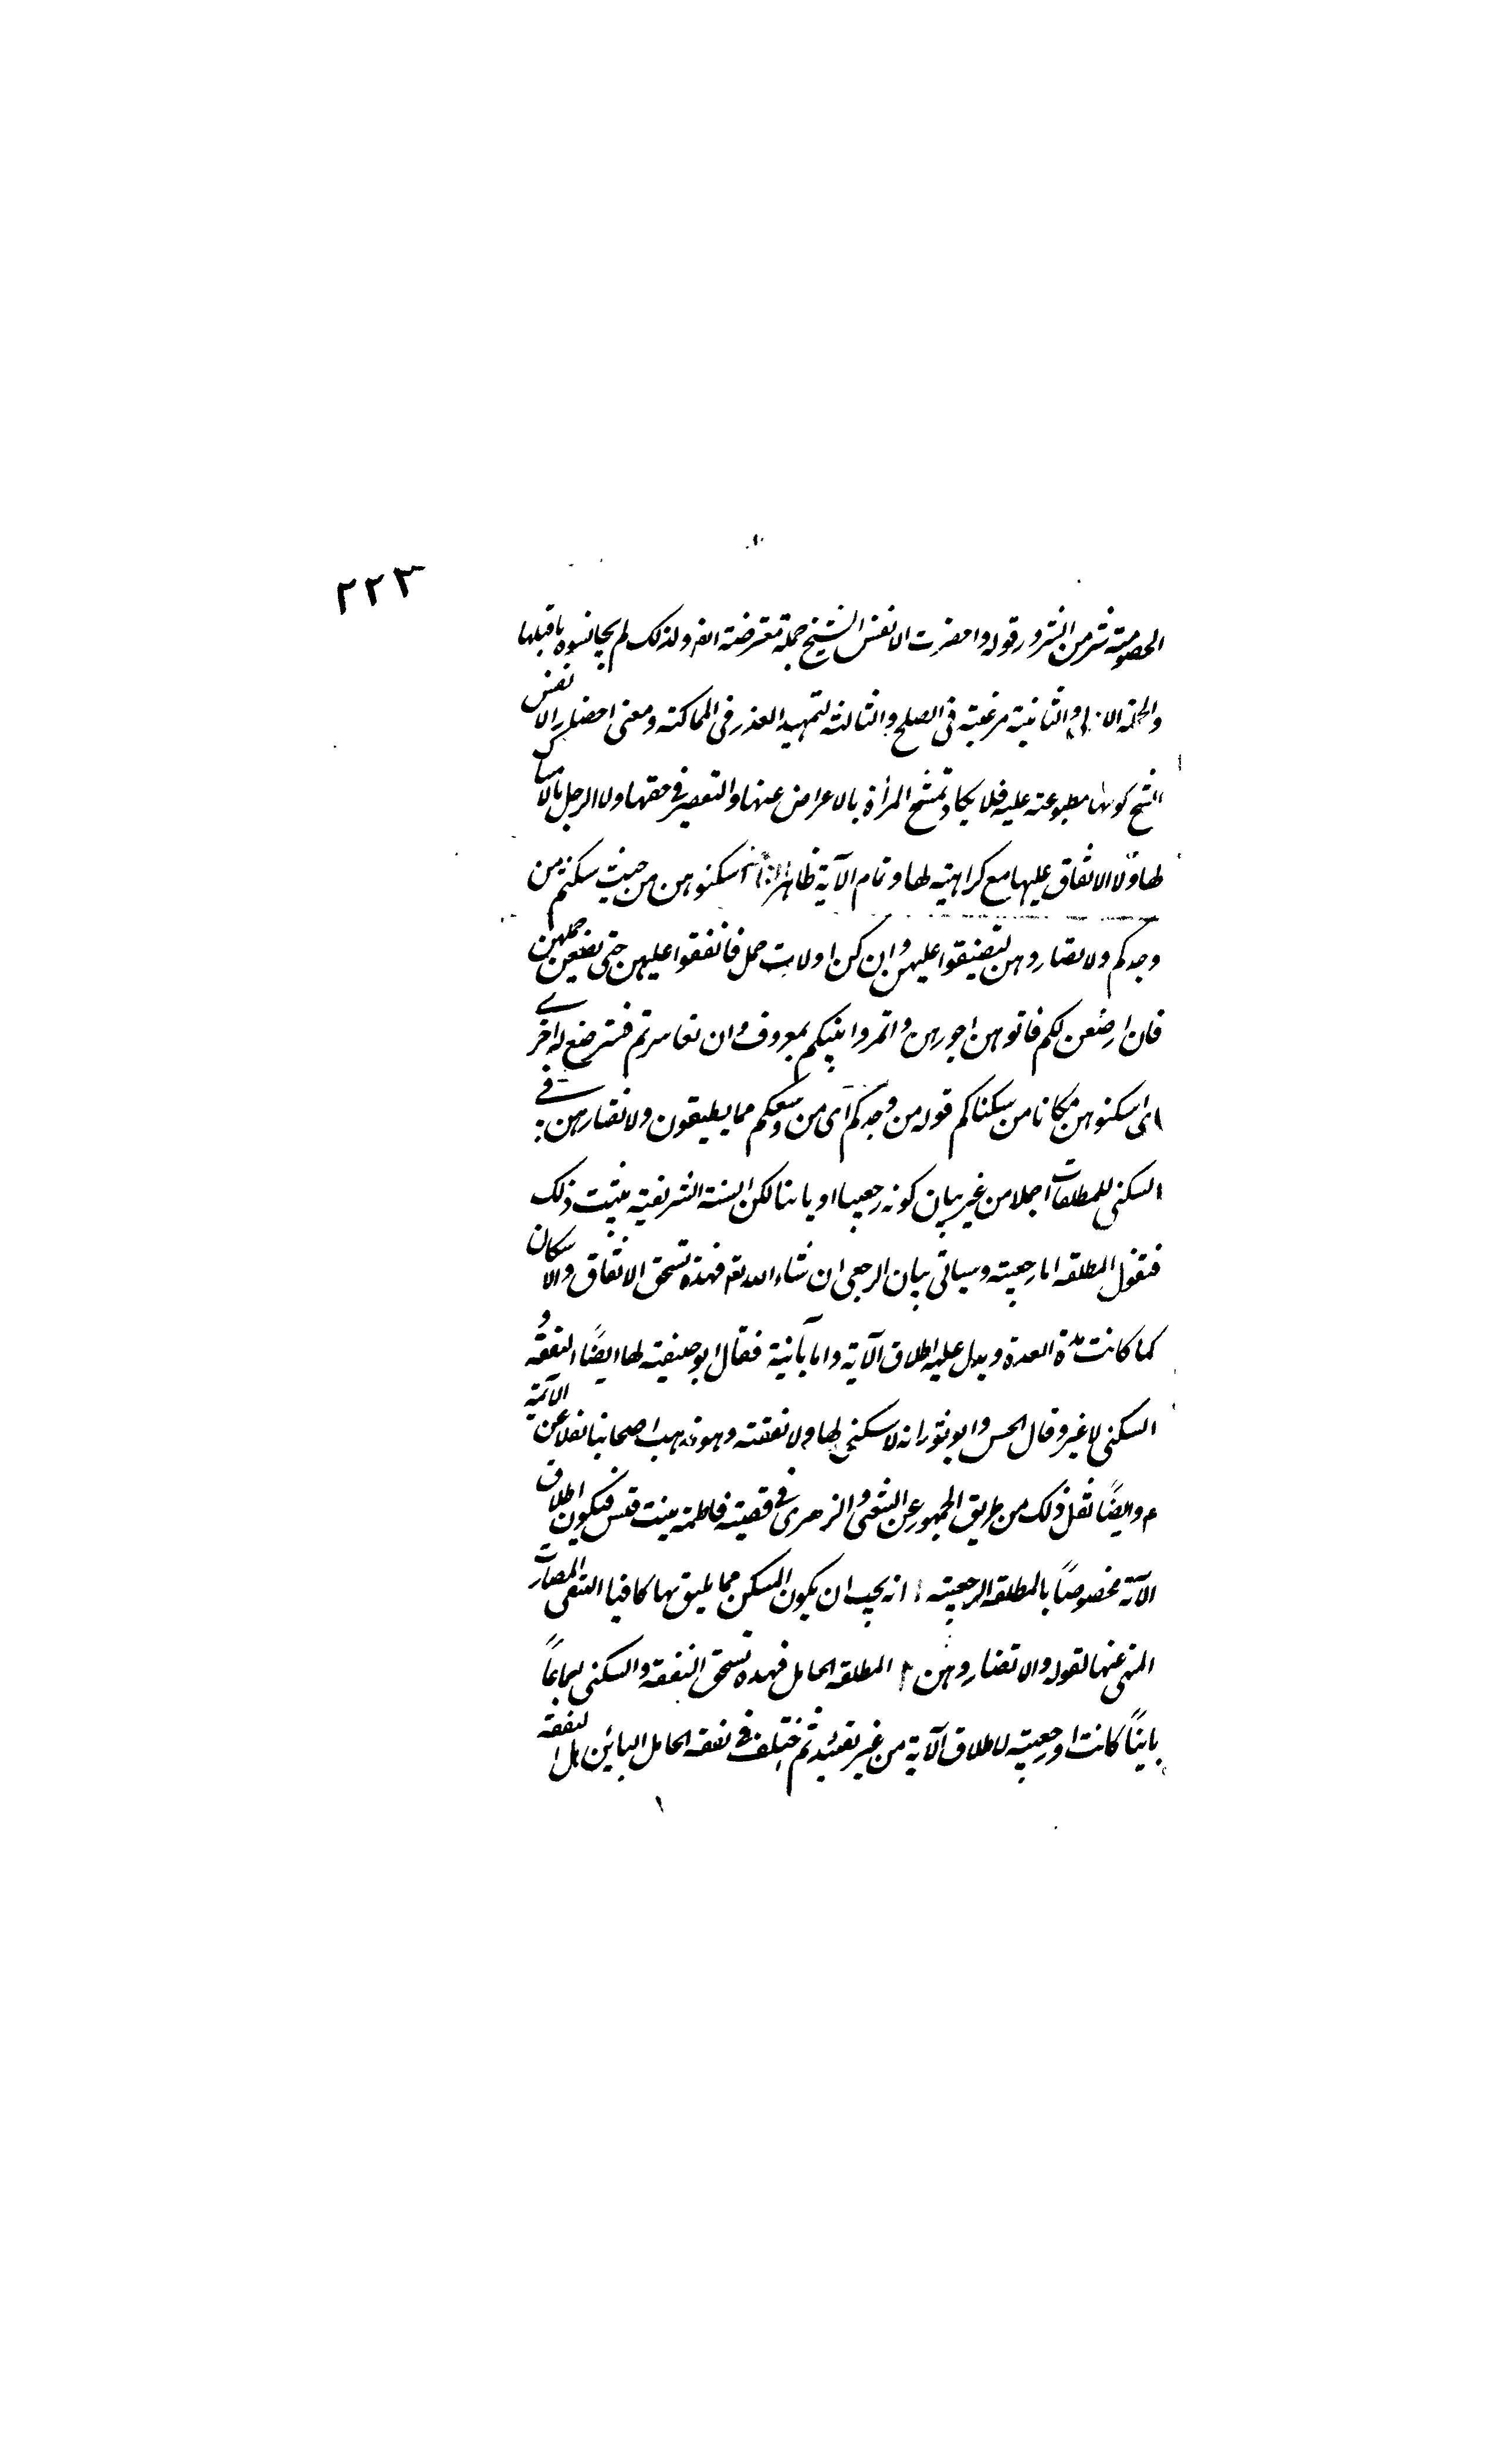 ٢٢٣
الخصومة شر من الشرور قوله واحضرت الانفس الشح جملة معترضة ايضا ولذلك لم يجانسوه ما قبلها
والجملة الاولى والثانية مرغبة فى الصلح والثالثة لتمهيد العذر فى المماكثة ومعنى احضار الانفس
الشح كونها مطبوعة عليه فلا يكاد تمشح المرأة بالاعراض عنها والتقصير فى حقها ولا الرجل بالامساك
لها ولا الانفاق عليها مع كراهيته لها وتمام الآية ظاهر اسكنوهن من حيث سكنتم من
وجدكم ولا تضاروهن لتضيقوا عليهن وان كن اولات حمل فانفقوا عليهن حتى يضعن حملهن
فان ارضعن لكم فاتوهن اجورهن واتمروا بينكم بمعروف وان تعاسرتم فسترضع له اخرى
اى اسكنوهن مكانا من سكناكم قوله من وجدكم اى من وسعكم مما يطيقون ولا تضارهن فى
السكنى للمطلقات اجملا من غير بيان كونه رجعيا او باينا لكن السنة الشريفة بينت ذلك
فنقول المطلقه اما رجعية وسياتى بيان الرجعى ان شاء الله تع فهذه تستحق الانفاق والاسكان
كما كانت مدة العدة ويدل عليه اطلاق الآية واما بائنة فقال ابو حنيفة لها ايضًا النفقه و
السكنى لا غير وقال الحسن وابو ثور انه لا سكنى لها ولا نفقة وهو مذهب اصحابنا نقلا عن الائمة
ع وايضًا نقل ذلك من طريق الجمهور عن الشعبى والزهرى فى قصية فاطمة بنت قيس فيكون اطلاق
الآية مخصوصًا بالمطلقه الرجعية انه يجب ان يكون المسكن مما يليق بها كافيا لتنتفى المضارت
المنهى عنها لقوله ولا تضاروهن المطلقه الحامل فهذه تستحق النفقة والسكنى اجماعًا
باينًا كانت او رجعية لاطلاق الآية من غير تقييد ثم اختلف فى نفقه الحامل البائن هل النفقه